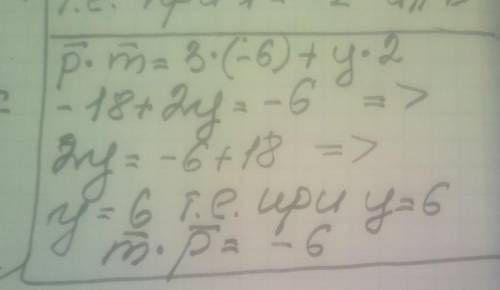 т.е. при
p̅·m̅=3·(-6)+y·2
-18+2y=-6 =>
2y=-6+18 =>
y=6 т.е. при y=6
m̅·p̅=-6